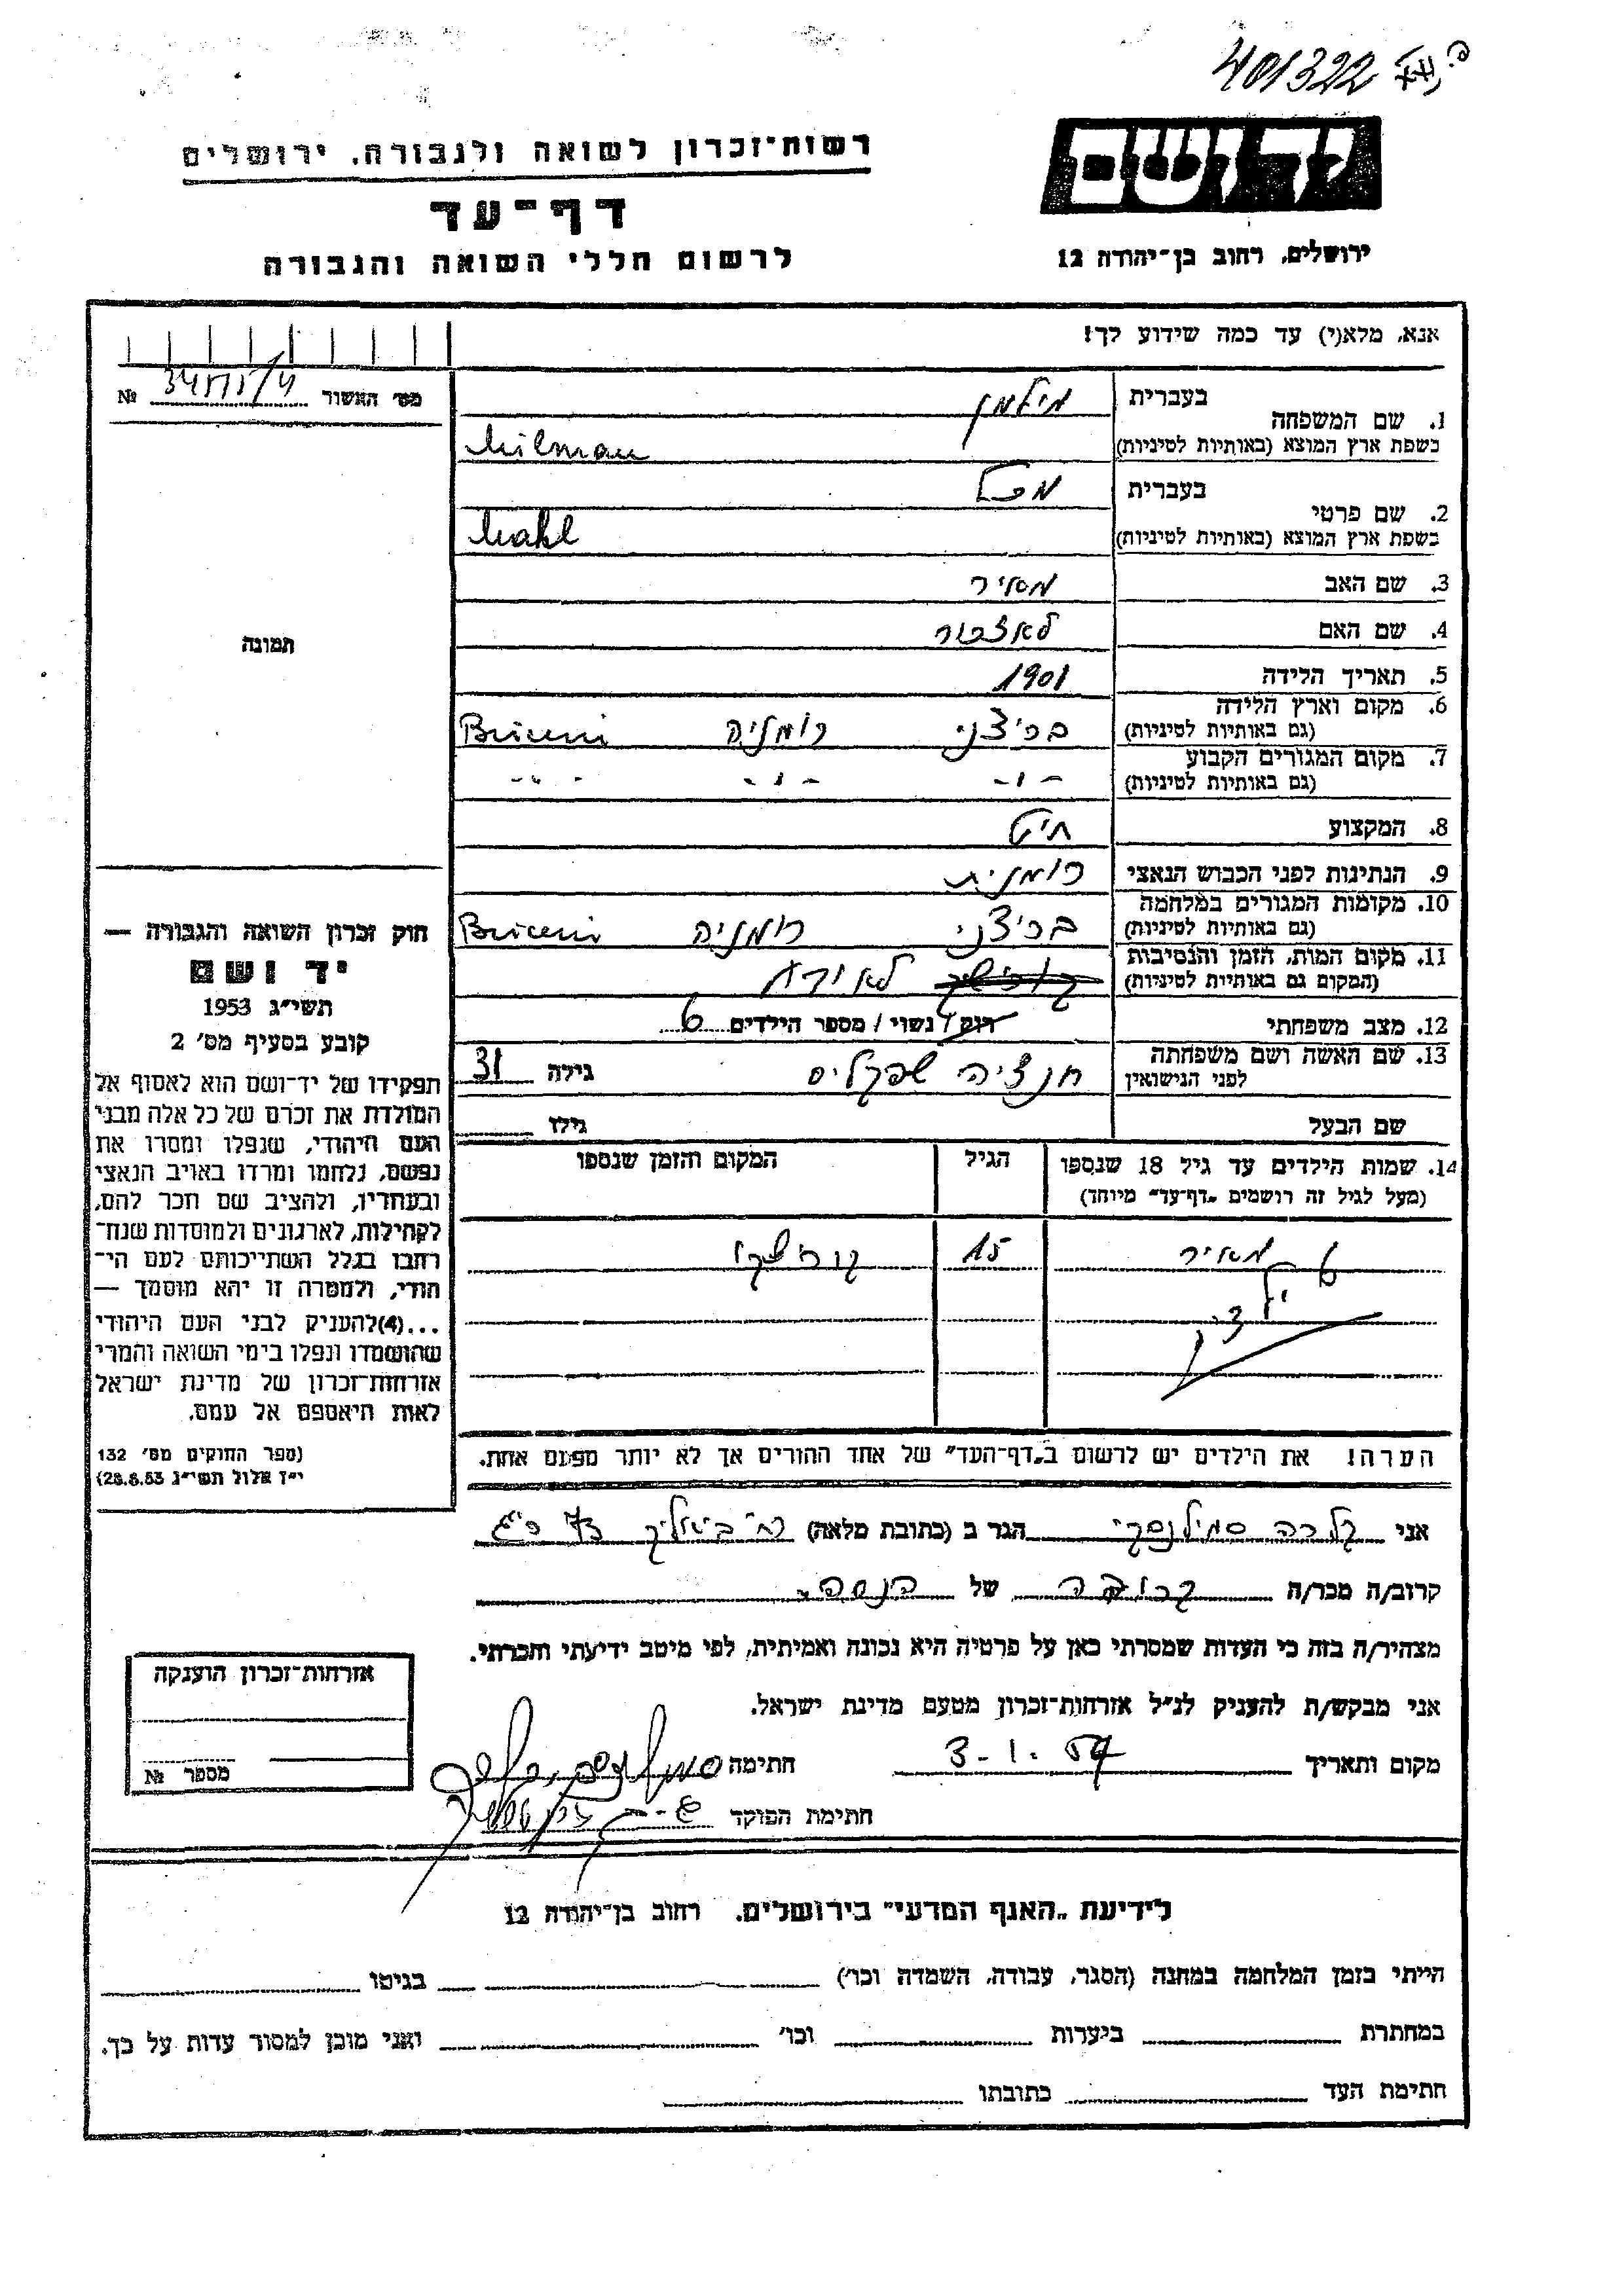 401322
יד ושם
רשות־זכרון לשואה ולגבורה, ירושלים
דף־עד
לרשום חללי השואה והגבורה
ירושלים, רחוב בן־יהודה 12
אנא, מלא(י) עד כמה שידוע לך!
מס׳ האשור №
1. שם המשפחה
בעברית מילמן
בשפת ארץ המוצא (באותיות לטיניות) Milman
2. שם פרטי
בעברית
בשפת ארץ המוצא (באותיות לטיניות) Mahl
3. שם האב מאיר
4. שם האם
5. תאריך הלידה 1901
6. מקום וארץ הלידה
(גם באותיות לטיניות) בריצ׳ני רומניה Briceni
7. מקום המגורים הקבוע
(גם באותיות לטיניות) -״- -״- -״-
8. המקצוע חיט
9. הנתינות לפני הכבוש הנאצי רומנית
10. מקומות המגורים במלחמה
(גם באותיות לטיניות) בריצ׳ני רומניה Briceni
11. מקום המות, הזמן והנסיבות
(המקום גם באותיות לטיניות) לא ידוע
12. מצב משפחתי רוק / נשוי / מספר הילדים 6
13. שם האשה ושם משפחתה
לפני הנישואין גילה 31
שם הבעל גילו
14. שמות הילדים עד גיל 18 שנספו
(מעל לגיל זה רושמים „דף־עד״ מיוחד)
הגיל
המקום והזמן שנספו
מאיר 15
הערה! את הילדים יש לרשום ב„דף־העד״ של אחד ההורים אך לא יותר מפעם אחת.
תמונה
חוק זכרון השואה והגבורה —
יד ושם
תשי״ג 1953
קובע בסעיף מס׳ 2
תפקידו של יד־ושם הוא לאסוף אל
המולדת את זכרם של כל אלה מבני
העם היהודי, שנפלו ומסרו את
נפשם, נלחמו ומרדו באויב הנאצי
ובעוזריו, ולהציב שם וזכר להם,
לקהילות, לארגונים ולמוסדות שנח־
רבו בגלל השתייכותם לעם הי־
הודי, ולמטרה זו יהא מוסמך —
...(4) להעניק לבני העם היהודי
שהושמדו ונפלו בימי השואה והמרי
אזרחות־זכרון של מדינת ישראל
לאות היאספם אל עמם.
(ספר החוקים מס׳ 132
י״ז אלול תשי״ג 28.8.53)
אני קלרה סמילנסקי הגר ב (כתובת מלאה)
קרוב/ה מכר/ה קרובה של הנספה
מצהיר/ה בזה כי העדות שמסרתי כאן על פרטיה היא נכונה ואמיתית, לפי מיטב ידיעתי והכרתי.
אני מבקש/ת להעניק לנ״ל אזרחות־זכרון מטעם מדינת ישראל.
מקום ותאריך 3-1.57 חתימה
חתימת הפוקד
אזרחות־זכרון הוענקה
מספר №
לידיעת „האגף המדעי״ בירושלים, רחוב בן־יהודה 12
הייתי בזמן המלחמה במחנה (הסגר, עבודה, השמדה וכו׳) בגיטו
במחתרת ביערות וכו׳ ואני מוכן למסור עדות על כך.
חתימת העד כתובתו